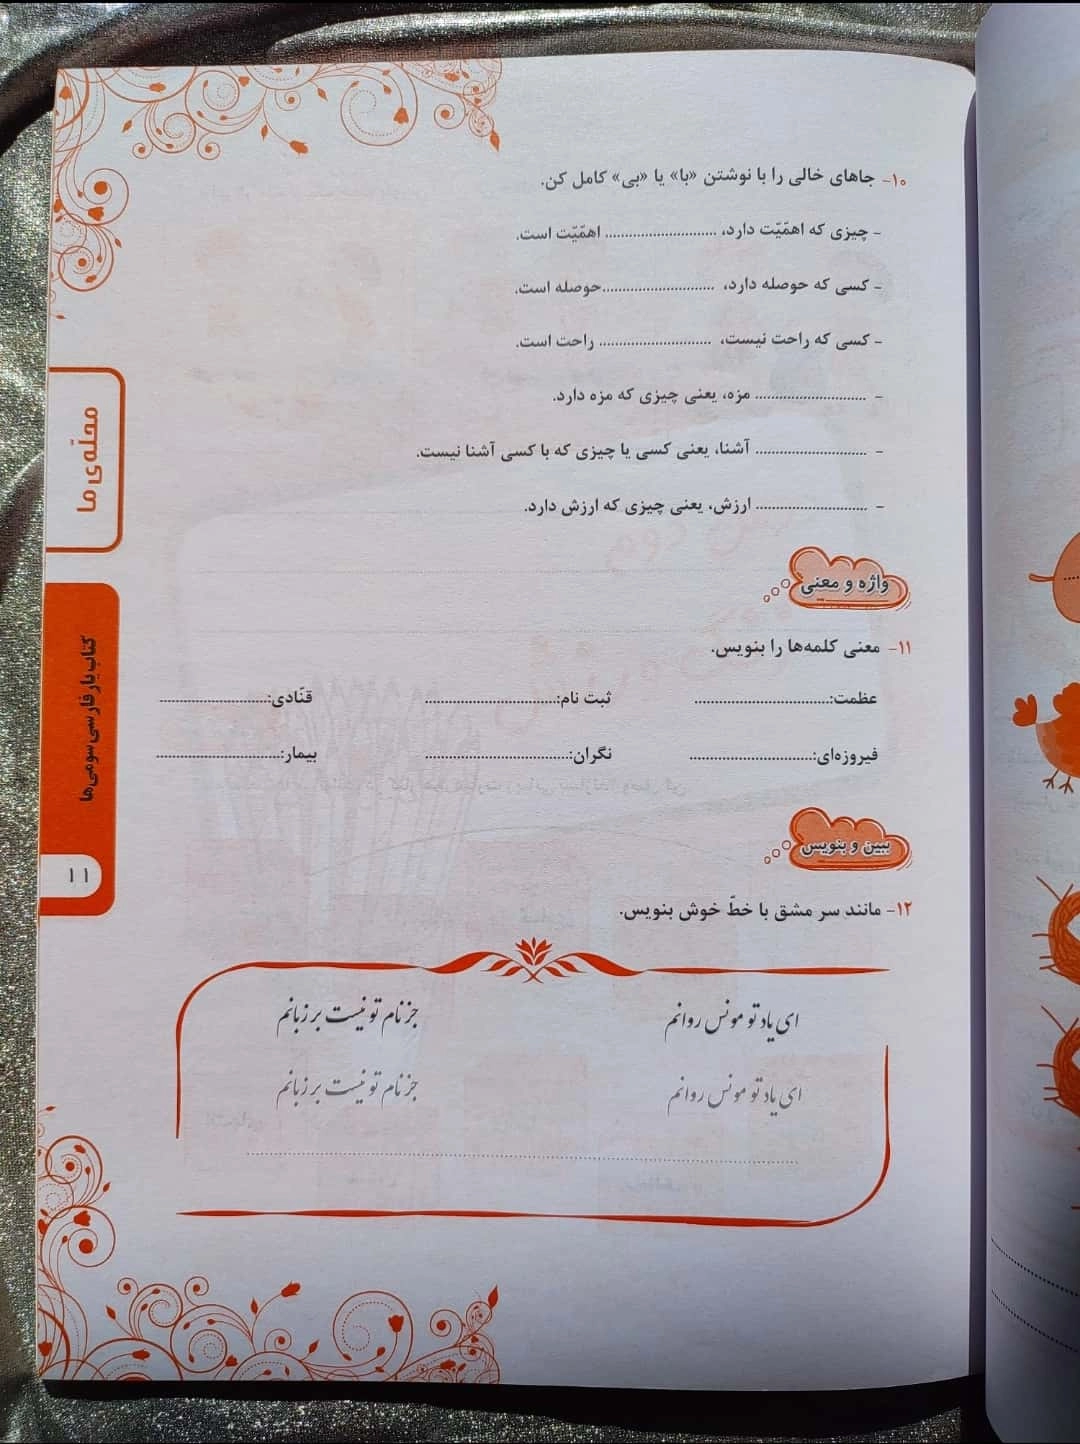 ۱۰- جاهای خالی را با نوشتن «با» یا «بی» کامل کن.
- چیزی که اهمّیّت دارد، ............................ اهمّیّت است.
- کسی که حوصله دارد، ............................حوصله است.
- کسی که راحت نیست، ............................ راحت است.
- ............................ مزه، یعنی چیزی که مزه دارد.
- ............................ آشنا، یعنی کسی یا چیزی که با کسی آشنا نیست.
- ............................ ارزش، یعنی چیزی که ارزش دارد.
واژه و معنی
۱۱- معنی کلمه‌ها را بنویس.
عظمت:.................................. ثبت نام:................................. قنّادی:...........................
فیروزه‌ای:............................... نگران:.................................... بیمار:...............................
ببین و بنویس
۱۲- مانند سر مشق با خطّ خوش بنویس.
ای یاد تو مونس روانم جز نام تو نیست بر زبانم
ای یاد تو مونس روانم جز نام تو نیست بر زبانم
محلّه‌ی ما
کتاب یار فارسی سومی‌ها
۱۱